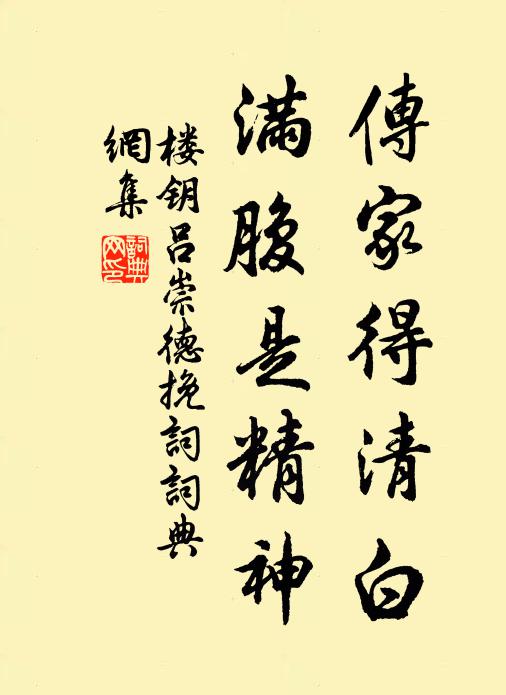 傳家得清白
滿腹是精神
楼钥吕崇德挽詞詞典
網集
詞典
网印